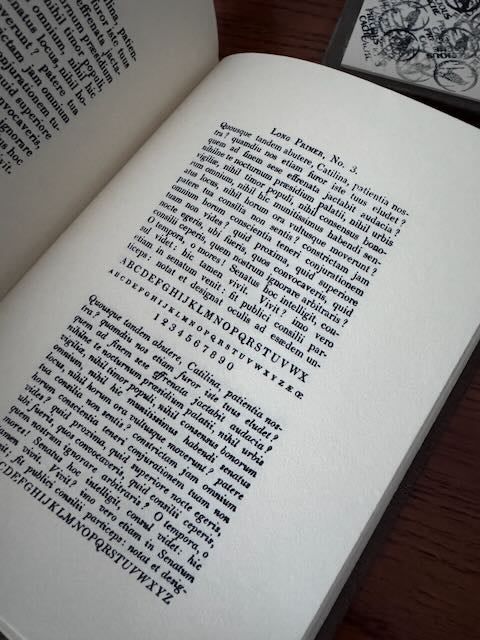 patien-
furor iste tuus
timor populi,
natus locus, nihil ho-
patere tua
jam omnium
quid superiore
convocaveris,
ignorare
hoc
LONG PRIMER, No. 3.
Quousque tandem abutere, Catilina, patientia nos-
tra? quamdiu nos etiam furor iste tuus eludet?
quem ad finem sese effrenata jactabit audacia?
nihilne te nocturnum præsidium palatii, nihil urbis
vigiliæ, nihil timor populi, nihil consensus bono-
rum omnium, nihil hic munitissimus habendi sen-
atus locus, nihil horum ora vultusque moverunt?
patere tua consilia non sentis? constrictam jam
omnium horum conscientia teneri conjurationem
tuam non vides? quid proxima, quid superiore
nocte egeris, ubi fueris, quos convocaveris, quid
consilii ceperis, quem nostrum ignorare arbitraris?
O tempora, o mores! Senatus hoc intelligit, con-
sul videt: hic tamen vivit. Vivit? imo vero
etiam in senatum venit: fit publici consilii par-
ticeps: notat et designat oculis ad cædem un-
ABCDEFGHIJKLMNOPQRSTUVWX
ABCDEFGHIJKLMNOPQRSTUVWXYZÆŒ
1234567890
Quousque tandem abutere, Catilina, patientia nos-
tra? quamdiu nos etiam furor iste tuus eludet?
quem ad finem sese effrenata jactabit audacia?
nihilne te nocturnum præsidium palatii, nihil urbis
vigiliæ, nihil timor populi, nihil consensus bonorum
omnium, nihil hic munitissimus habendi senatus
locus, nihil horum ora vultusque moverunt? patere
tua consilia non sentis? constrictam jam omnium
horum conscientia teneri conjurationem tuam non
vides? quid proxima, quid superiore nocte egeris,
ubi fueris, quos convocaveris, quid consilii ceperis,
quem nostrum ignorare arbitraris? O tempora, o
mores! Senatus hoc intelligit, consul videt: hic
tamen vivit. Vivit? imo vero etiam in Senatum
venit: fit publici consilii particeps: notat et desig-
ABCDEFGHIJKLMNOPQRSTUVWXYZ